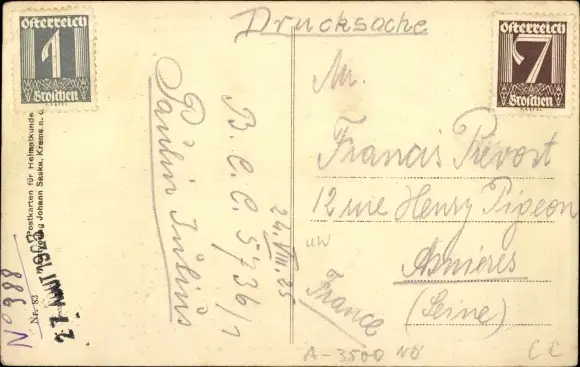 Drucksache
Österreich
1
Groschen
Österreich
7
Groschen
Mr.
Francis Prevost
12 rue Henry Pigeon
Asnières
(Seine)
France
B.C.C. 5736/1
Paulin Julius
24.VIII.25
Postkarten für Heimatkunde
Johann Saska, Krems a. d.
Nr. 83
No 988
A-3500 NÖ
CC